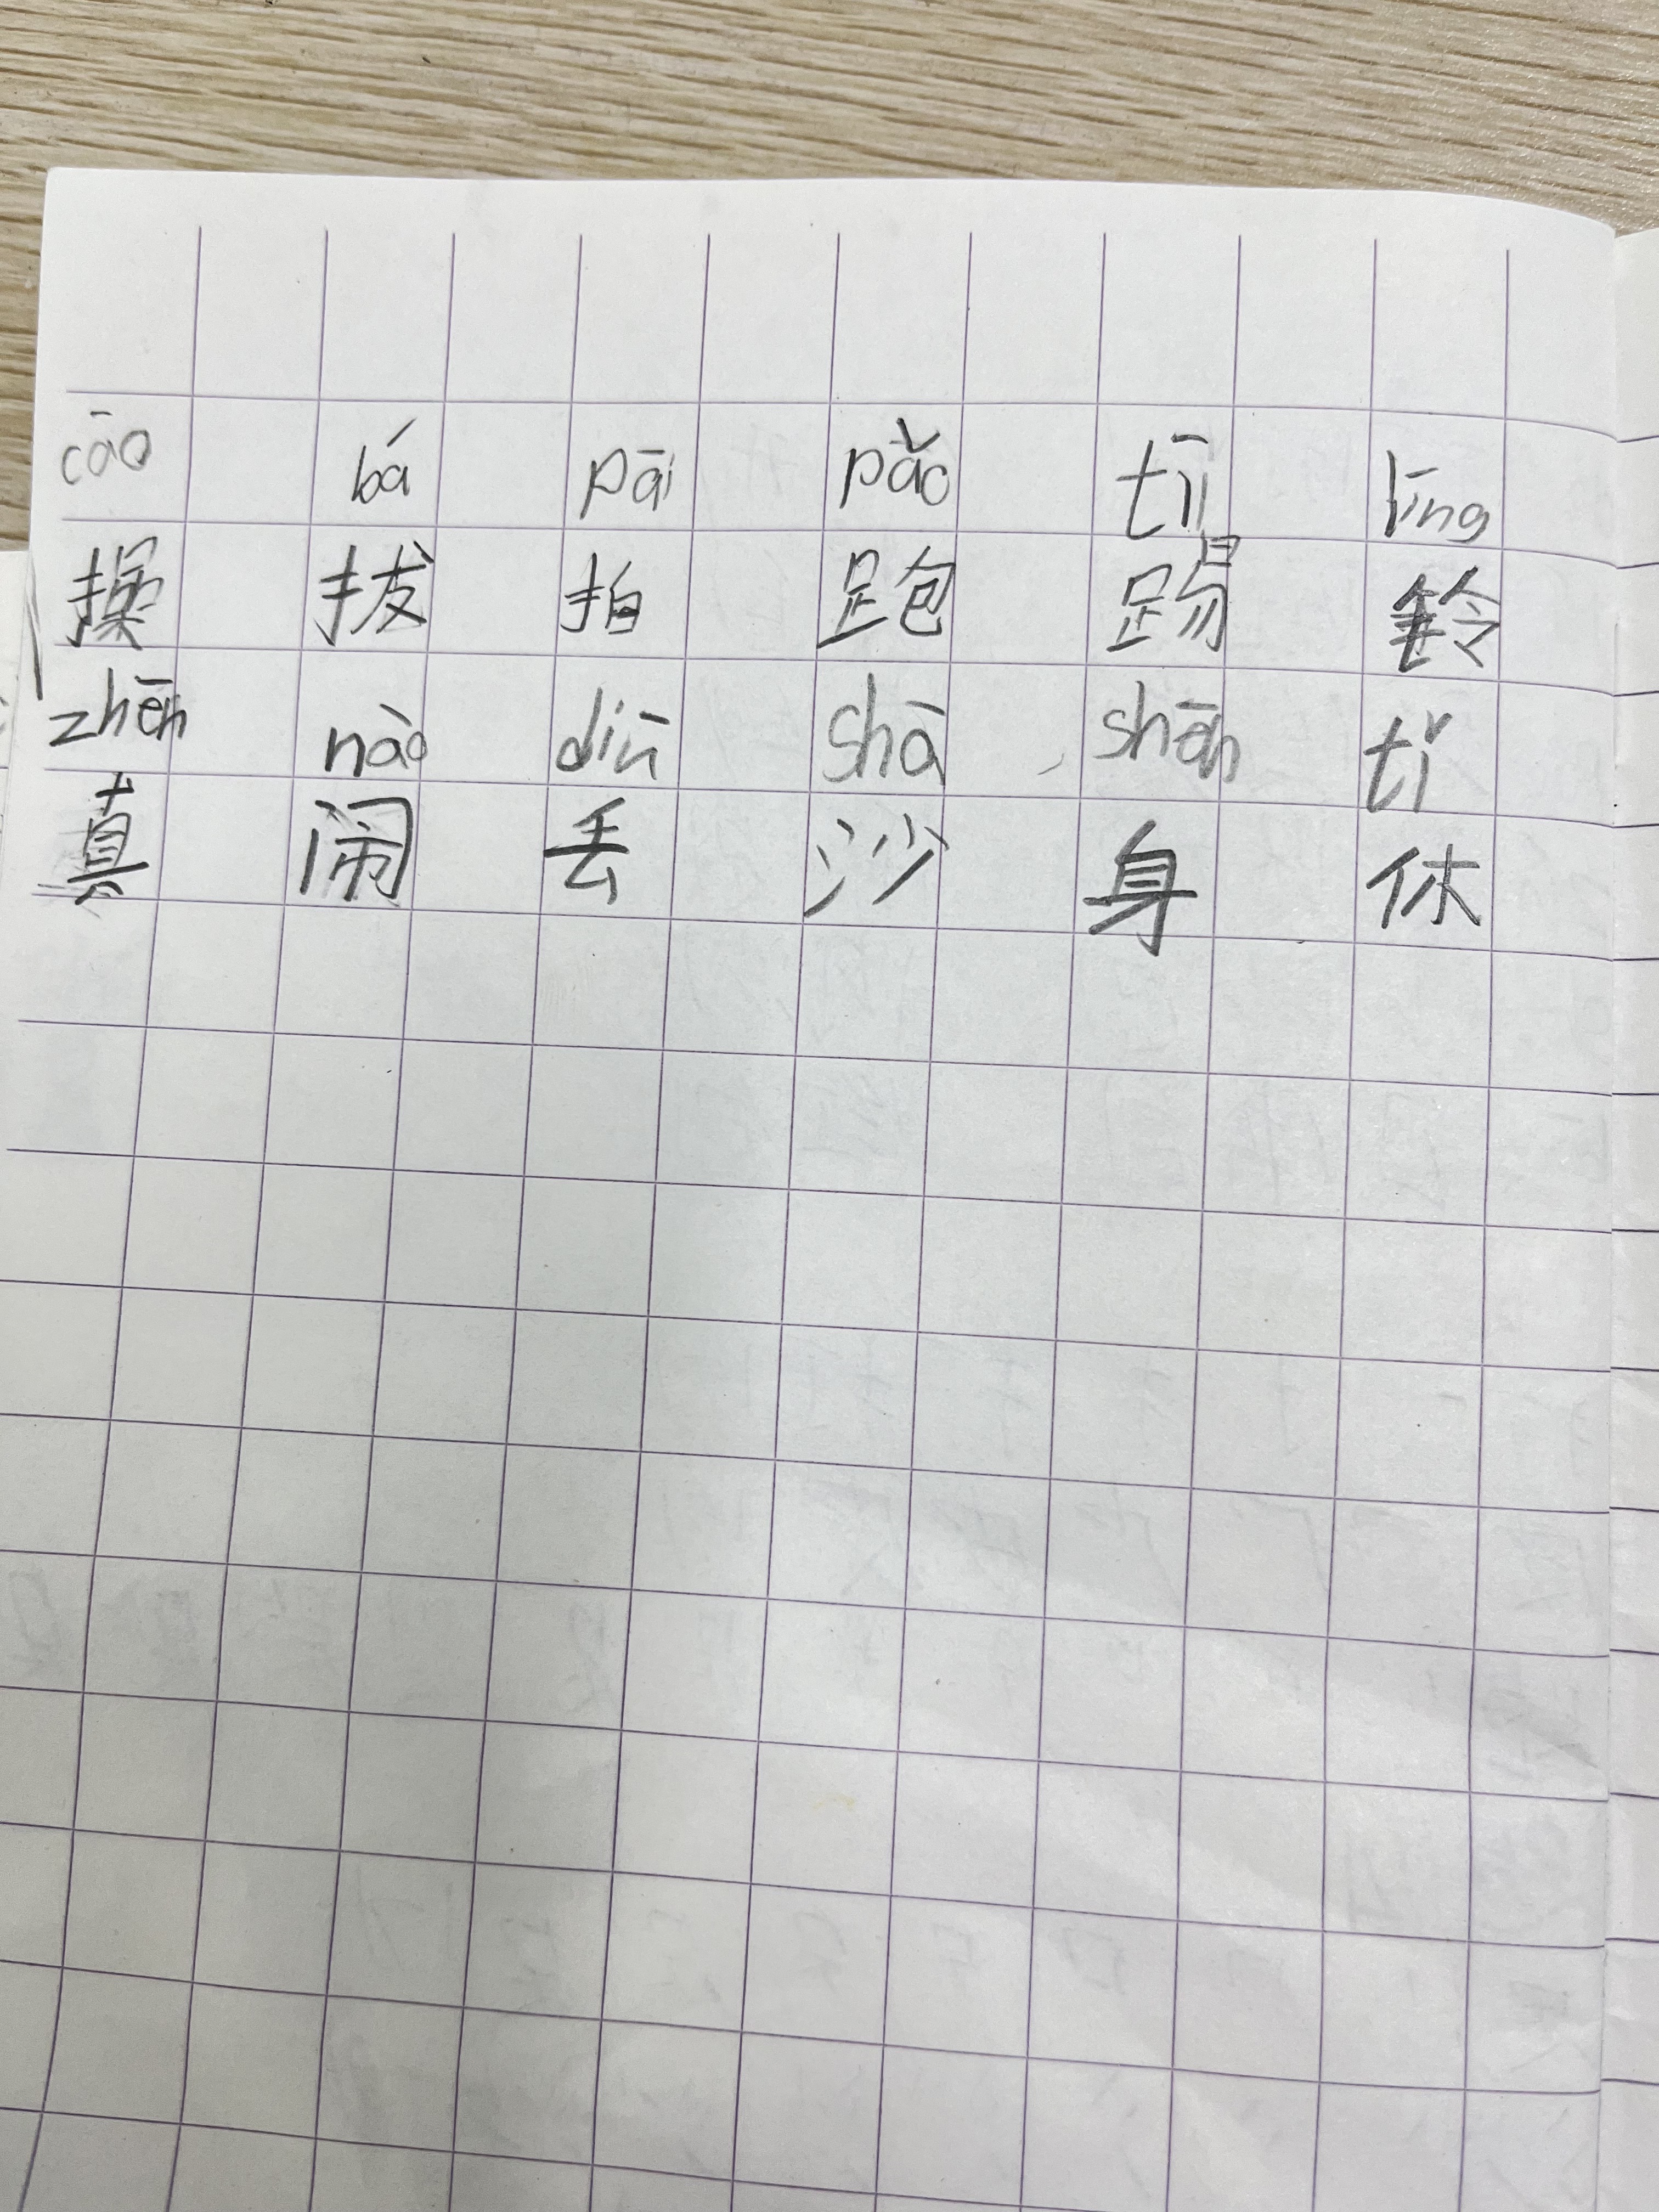 cāo bá pāi pǎo tī líng
操 拔 拍 跑 踢 铃
zhēn nào diū shā shēn tǐ
真 闹 丢 沙 身 休